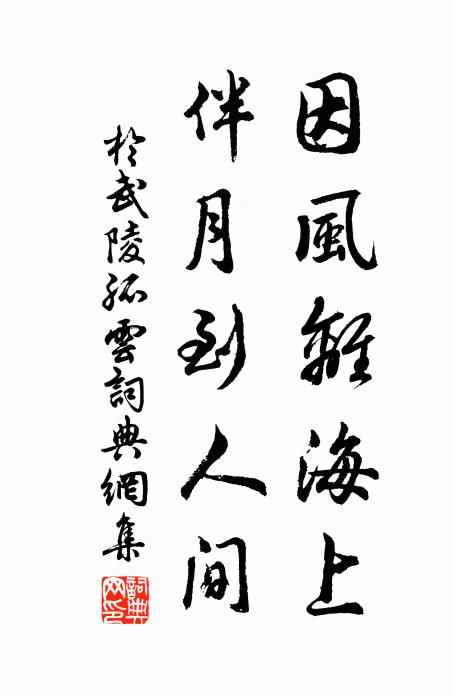 因風離海上
伴月到人間
於武陵孤雲詞典網集
詞典
网印